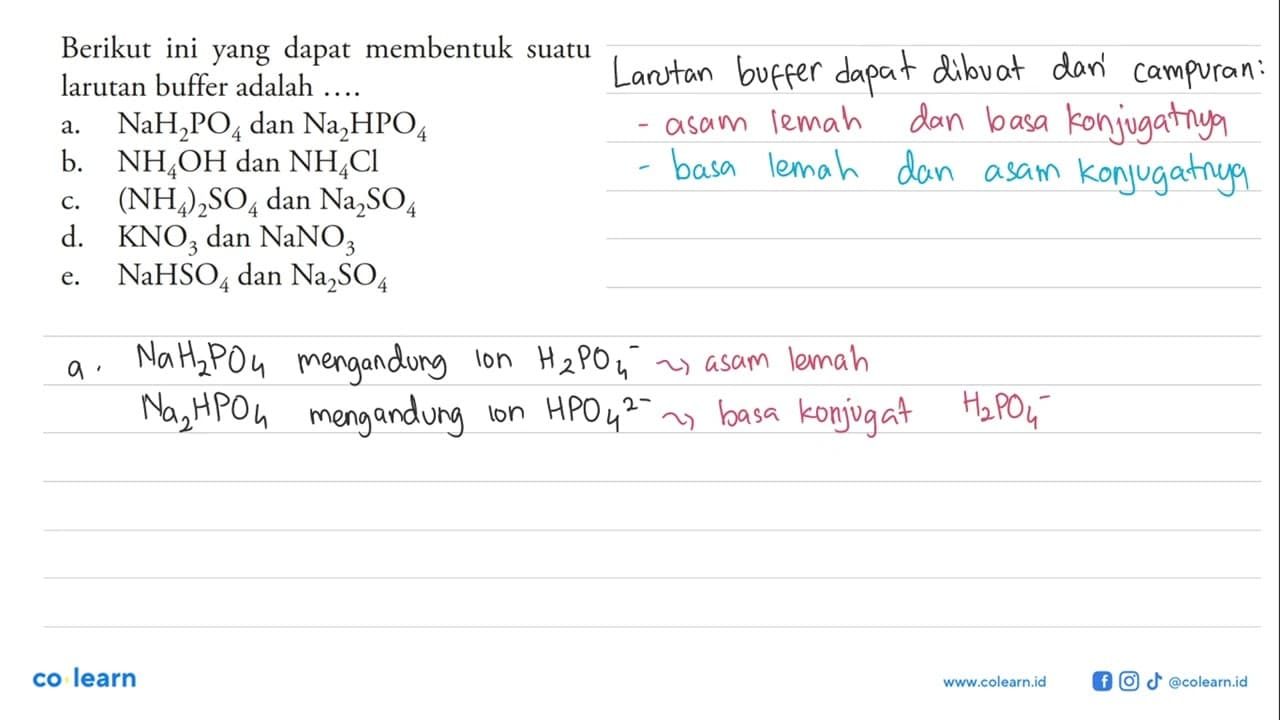 Berikut ini yang dapat membentuk suatu
larutan buffer adalah ....
a. NaH₂PO₄ dan Na₂HPO₄
b. NH₄OH dan NH₄Cl
c. (NH₄)₂SO₄ dan Na₂SO₄
d. KNO₃ dan NaNO₃
e. NaHSO₄ dan Na₂SO₄
Larutan buffer dapat dibuat dari campuran:
- asam lemah dan basa konjugatnya
- basa lemah dan asam konjugatnya
a. NaH₂PO₄ mengandung ion H₂PO₄⁻ ⇝ asam lemah
Na₂HPO₄ mengandung ion HPO₄²⁻ ⇝ basa konjugat H₂PO₄⁻
co learn
www.colearn.id
@colearn.id